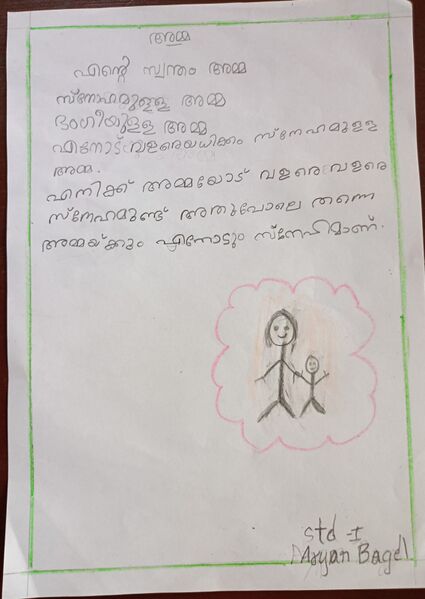 അമ്മ
എന്റെ സ്വന്തം അമ്മ
സ്നേഹമുള്ള അമ്മ
ഭംഗീയുള്ള അമ്മ
എന്നോട് വളരെയധികം സ്നേഹമുള്ള
അമ്മ.
എനിക്ക് അമ്മയോട് വളരെ വളരെ
സ്നേഹമുണ്ട് അതുപോലെ തന്നെ
അമ്മയ്ക്കും എന്നോടും സ്നേഹമാണ്.
std - I
Aryan Bagel